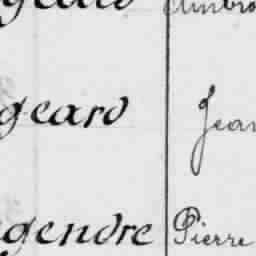 geard Ambro
geard Jean
gendre Pierre